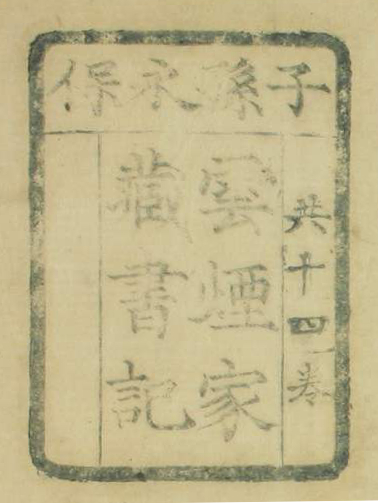 子孫永保
共十四卷
雲煙家
藏書記